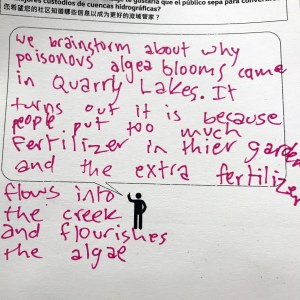 ejores custodios de cuencas hidrográficas?
您希望您的社区知道哪些信息以成为更好的流域管家？
we brainstorm about why
poisonous algea blooms came
in Quarry Lakes. It
turns out it is because
people put too much
fertilizer in thier garden
and the extra fertilizer
flows into
the creek
and flourishes
the algae